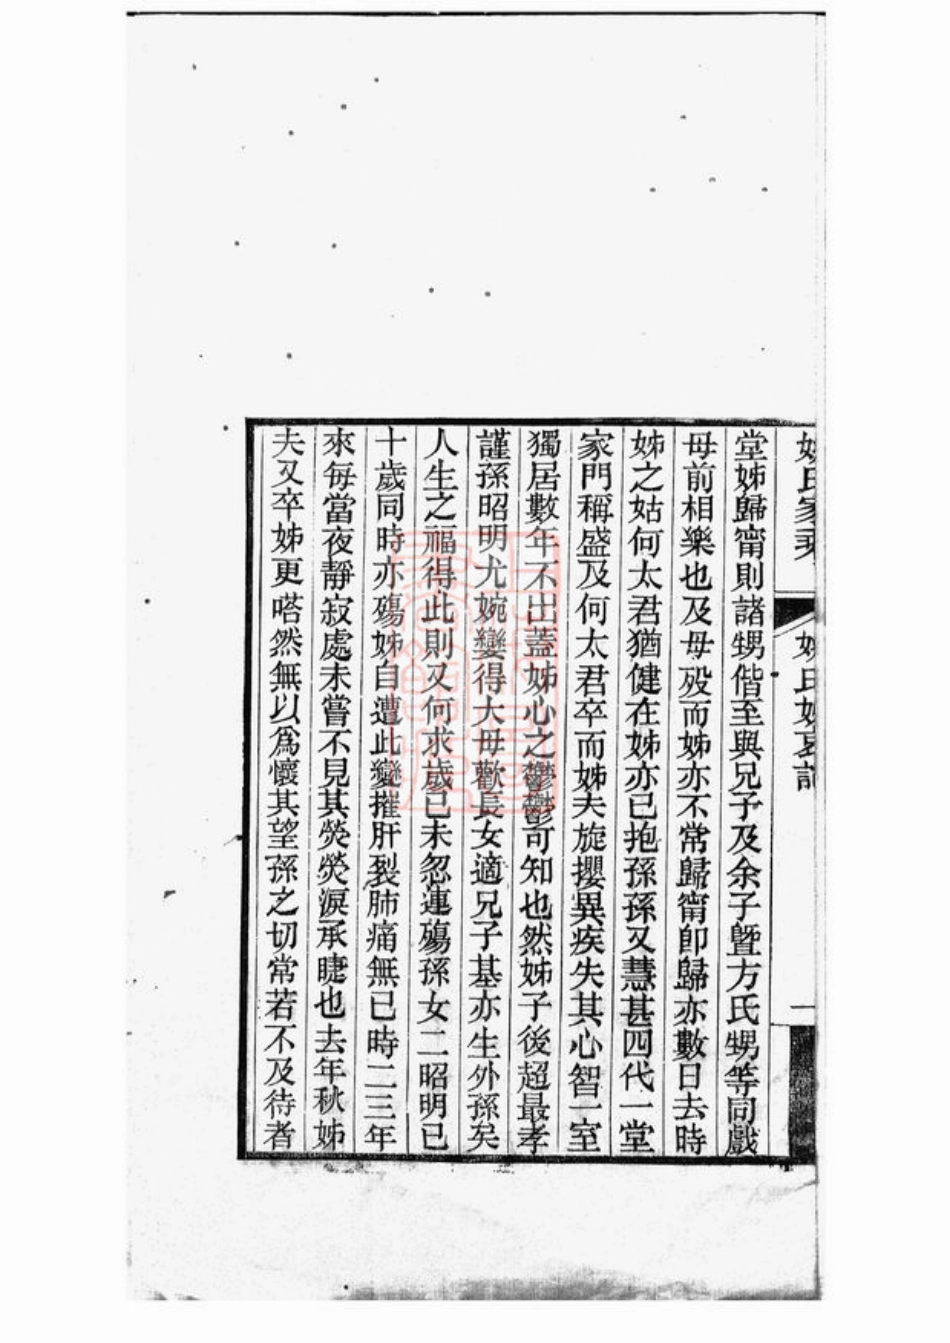 堂姊歸甯則諸甥偕至與兄子及余子曁方氏甥等同戲
母前相樂也及母歿而姊亦不常歸甯卽歸亦數日去時
姊之姑何太君猶健在姊亦已抱孫孫又慧甚四代一堂
家門稱盛及何太君卒而姊夫旋攖異疾失其心智一室
獨居數年不出蓋姊心之鬱鬱可知也然姊子後超最孝
謹孫昭明尤婉孌得大母歡長女適兄子基亦生外孫矣
人生之福得此則又何求歲己未忽連殤孫女二昭明已
十歲同時亦殤姊自遭此變摧肝裂肺痛無已時二三年
來每當夜靜寂處未嘗不見其熒熒淚承睫也去年秋姊
夫又卒姊更嗒然無以爲懷其望孫之切常若不及待者